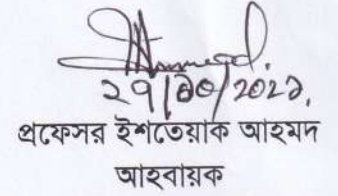 ২৭/১০/২০২১
প্রফেসর ইশতেয়াক আহমদ
আহবায়ক